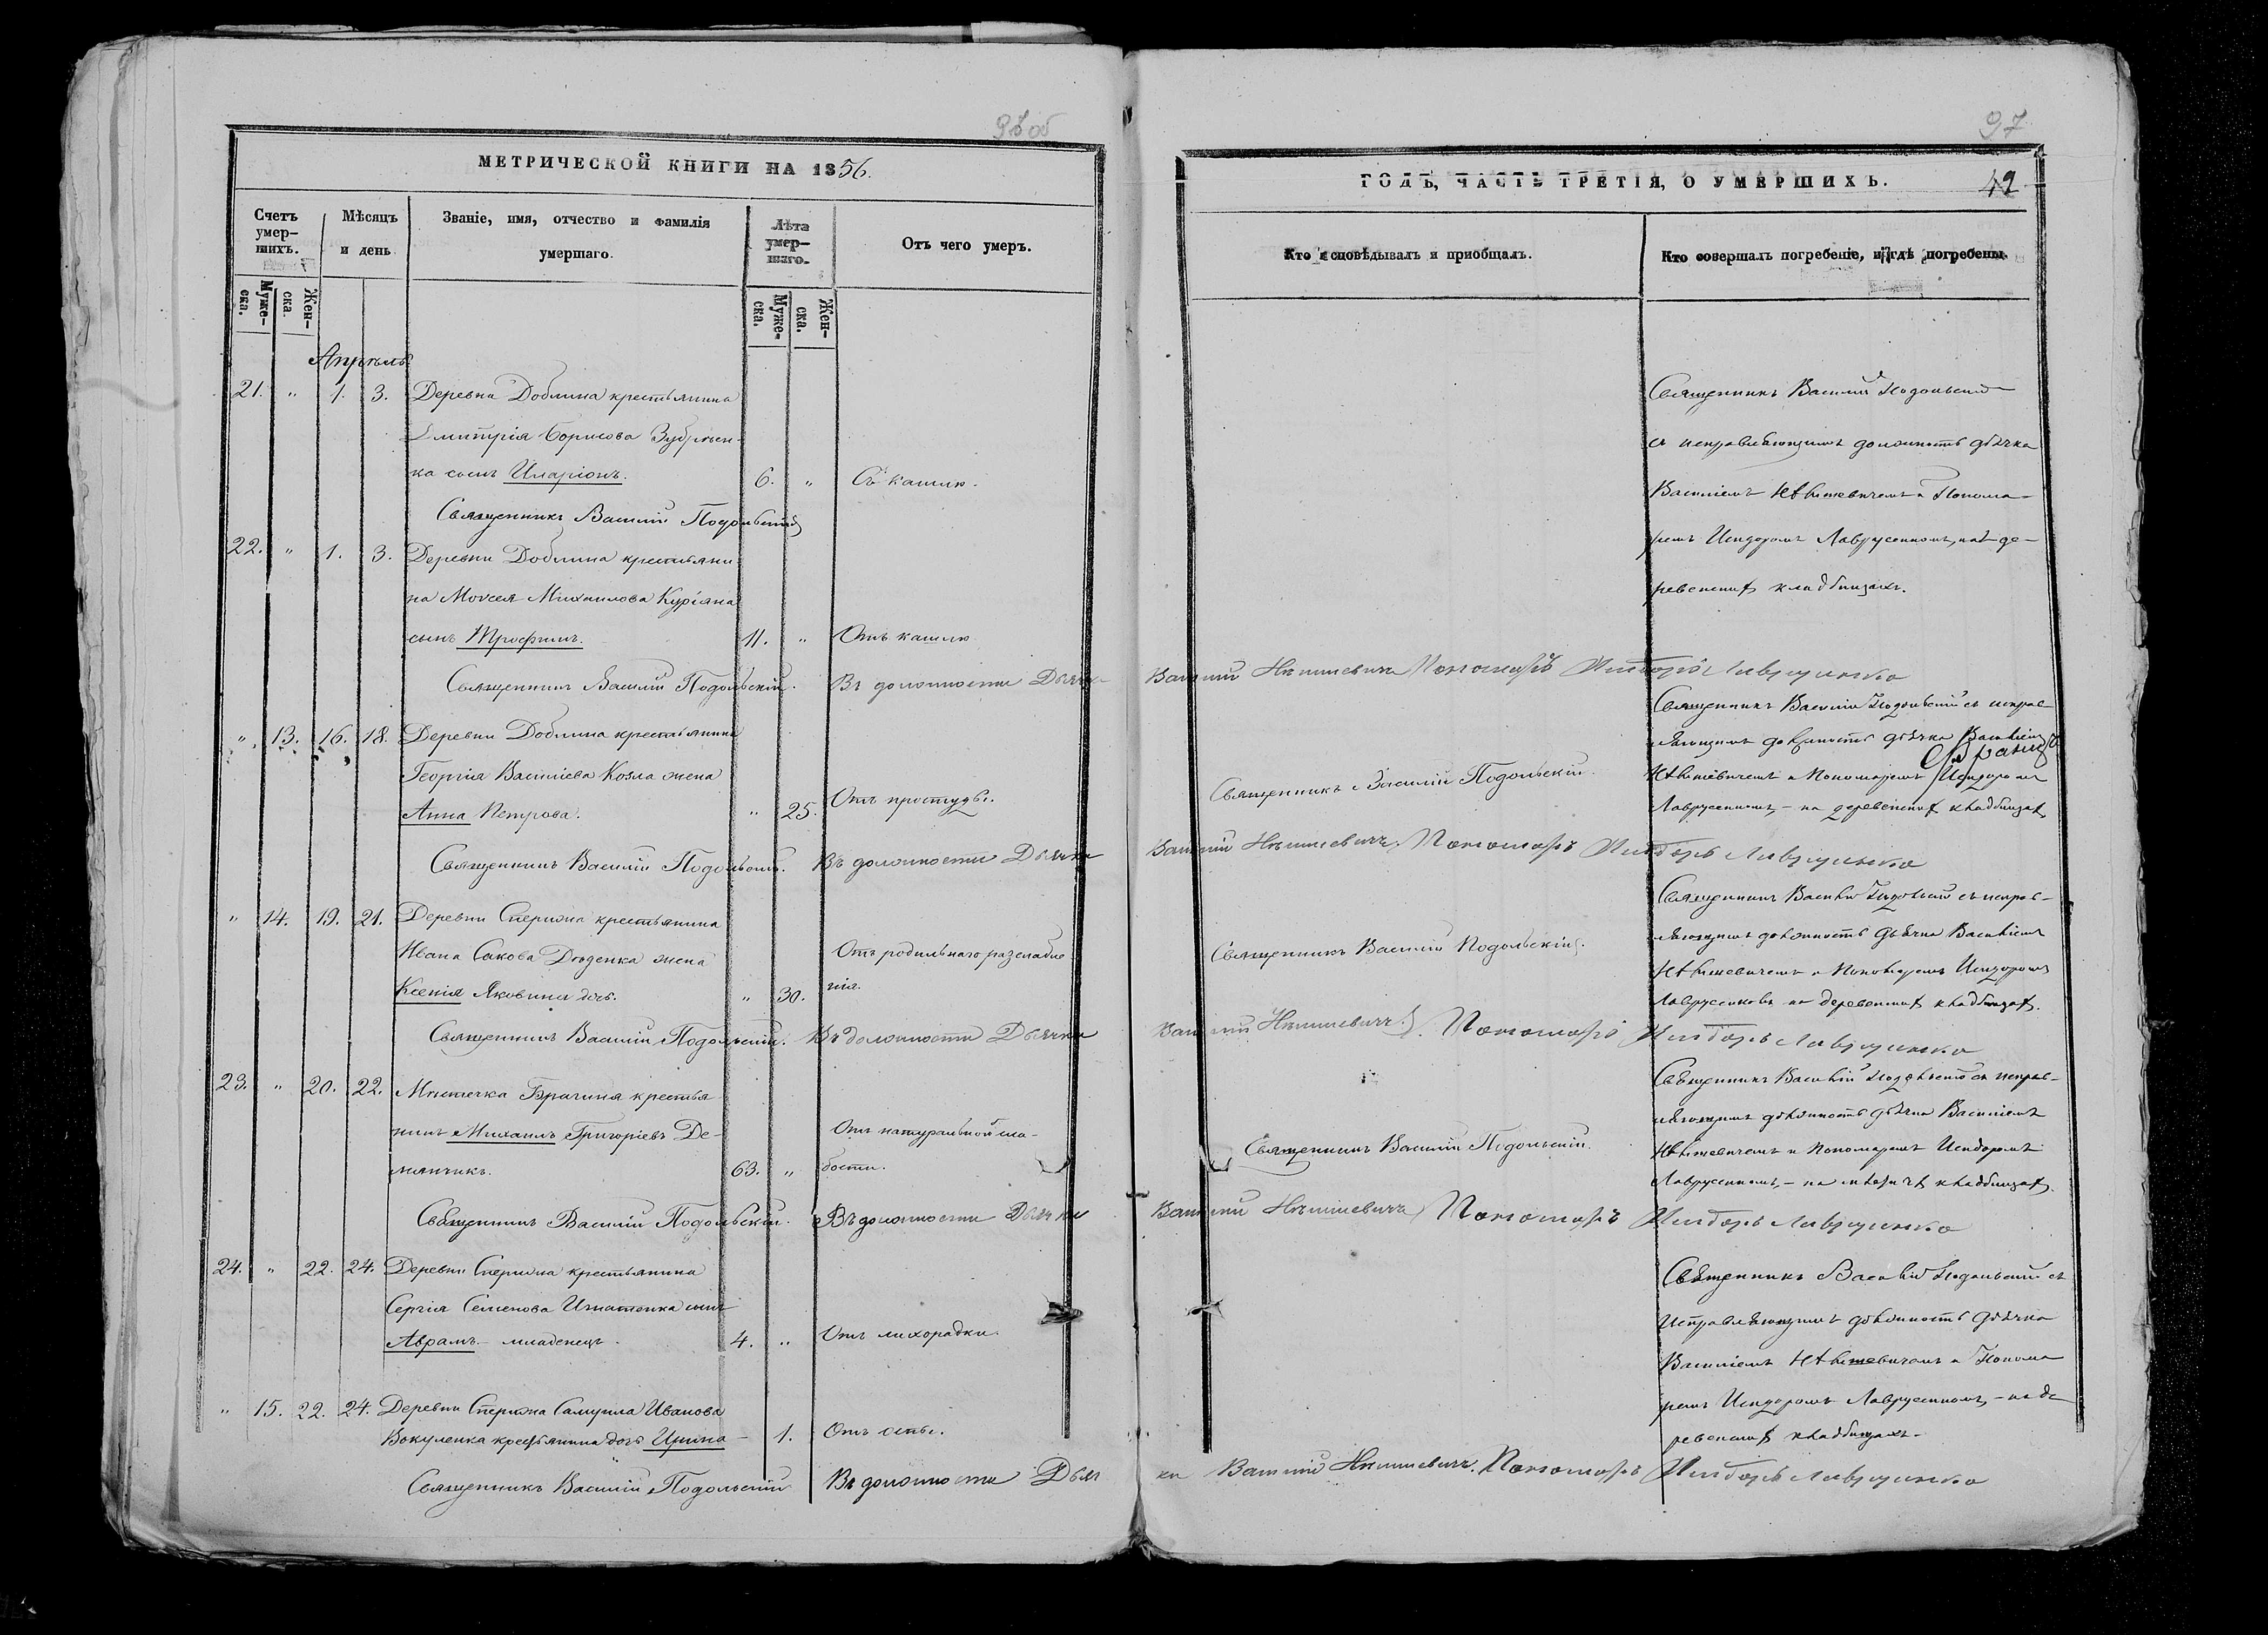 96 об
МЕТРИЧЕСКОЙ КНИГИ НА 1856.
Счетъ умер-шихъ.
Мѣсяцъ и день
Званіе, имя, отчество и фамилія умершаго.
Лѣта умер-шаго.
Отъ чего умеръ.
Муже-ска.
Жен-ска.
Муже-ска.
Жен-ска.
Апрѣль
21. " 1. 3. Деревни Доблина крестьянина
Дмитрія Борисова
ка сынъ Иларіонъ. 6. " Съ кашлю.
Священникъ Василій Подольскій
22. " 1. 3. Деревни Доблина крестьяни
на Моисея Михаилова Куріяна
сынъ Трофимъ. 11. " Отъ кашлю
Священникъ Василій Подольскій. Въ должности Дьячка
" 13. 16. 18. Деревни Доблина крестьянина
Георгія Василіева Козла жена
Анна Петрова. " 25. Отъ простуды.
Священникъ Василій Подольскій. Въ должности Дьячка
" 14. 19. 21. Деревни Сперижа крестьянина
Ивана Сакова жена
Ксенія Яковина дочь. " 30. Отъ родильнаго разслабле
нія.
Священникъ Василій Подольскій. Въ должности Дьячка
23. " 20. 22. Мѣстечка Брагина крестья
нинъ Михаилъ Григоріевъ Де-
мянчикъ. 63. " Отъ натуральной сла-
бости.
Священникъ Василій Подольскій. Въ должности Дьячка
24. " 22. 24. Деревни Сперижа крестьянина
Сергія Семенова Игнатенка сынъ
Аврамъ младенецъ. 4. " Отъ лихорадки.
" 15. 22. 24. Деревни Сперижа Самуила Иванова
Вакуленка крестьянина дочь Ирина - 1. Отъ оспы.
Священникъ Василій Подольскій Въ должности Дьяч
97
ГОДЪ, ЧАСТЬ ТРЕТІЯ, О УМЕРШИХЪ. 42
Кто исповѣдывалъ и пріобщалъ.
Кто совершалъ погребеніе, и гдѣ погребены.
Священникъ Василій Подольскій
съ исправляющимъ должность дьячка
Василіемъ и Понома-
ремъ Исидоромъ Лаврусенкомъ, на де-
ревенскихъ кладбищахъ.
Василій Пономарь Исидоръ Лаврусенко
Священникъ Василій Подольскій съ исправ-
ляющимъ должность дьячка Василіемъ
Священникъ Василій Подольскій.
и Пономаремъ Исидоромъ
Лаврусенкомъ, - на деревенскихъ кладбищахъ
Василій Пономарь Исидоръ Лаврусенко
Священникъ Василій Подольскій съ исправ-
ляющимъ должность дьячка Василіемъ
Священникъ Василій Подольскій.
и Пономаремъ Исидоромъ
Лаврусенкомъ на деревенскихъ кладбищахъ.
Василій Пономарь Исидоръ Лаврусенко
Священникъ Василій Подольскій съ исправ-
ляющимъ должность дьячка Василіемъ
Священникъ Василій Подольскій.
и Пономаремъ Исидоромъ
Лаврусенкомъ, - на кладбищахъ.
Василій Пономарь Исидоръ Лаврусенко
Священникъ Василій Подольскій съ
исправляющимъ должность дьячка
Василіемъ и Понома
ремъ Исидоромъ Лаврусенкомъ, - на де
ревенскихъ кладбищахъ.
ка Василій Пономарь Исидоръ Лаврусенко